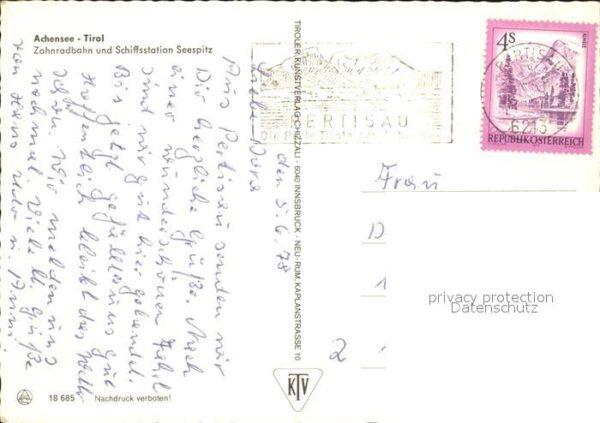 Achensee - Tirol
Zahnradbahn und Schiffsstation Seespitz
den 5.6.78
Liebe Dora
Aus Pertisau senden wir
Dir herzliche Grüße. Nach
einer wunderschönen Fahrt
sind wir gut hier gelandet.
Bis jetzt gefällt es uns gut
Hoffentlich bleibt das Wetter
schön. Wir melden uns
nochmal. Viele lb. Grüße
von Hans u.
18 685 Nachdruck verboten!
TIROLER KUNSTVERLAG CHIZZALI · 6040 INNSBRUCK - NEU-RUM, KAPLANSTRASSE 10
KTV
PERTISAU
PERTISAU
6213
4 S
REPUBLIK ÖSTERREICH
Frau
D
1
2
privacy protection
Datenschutz